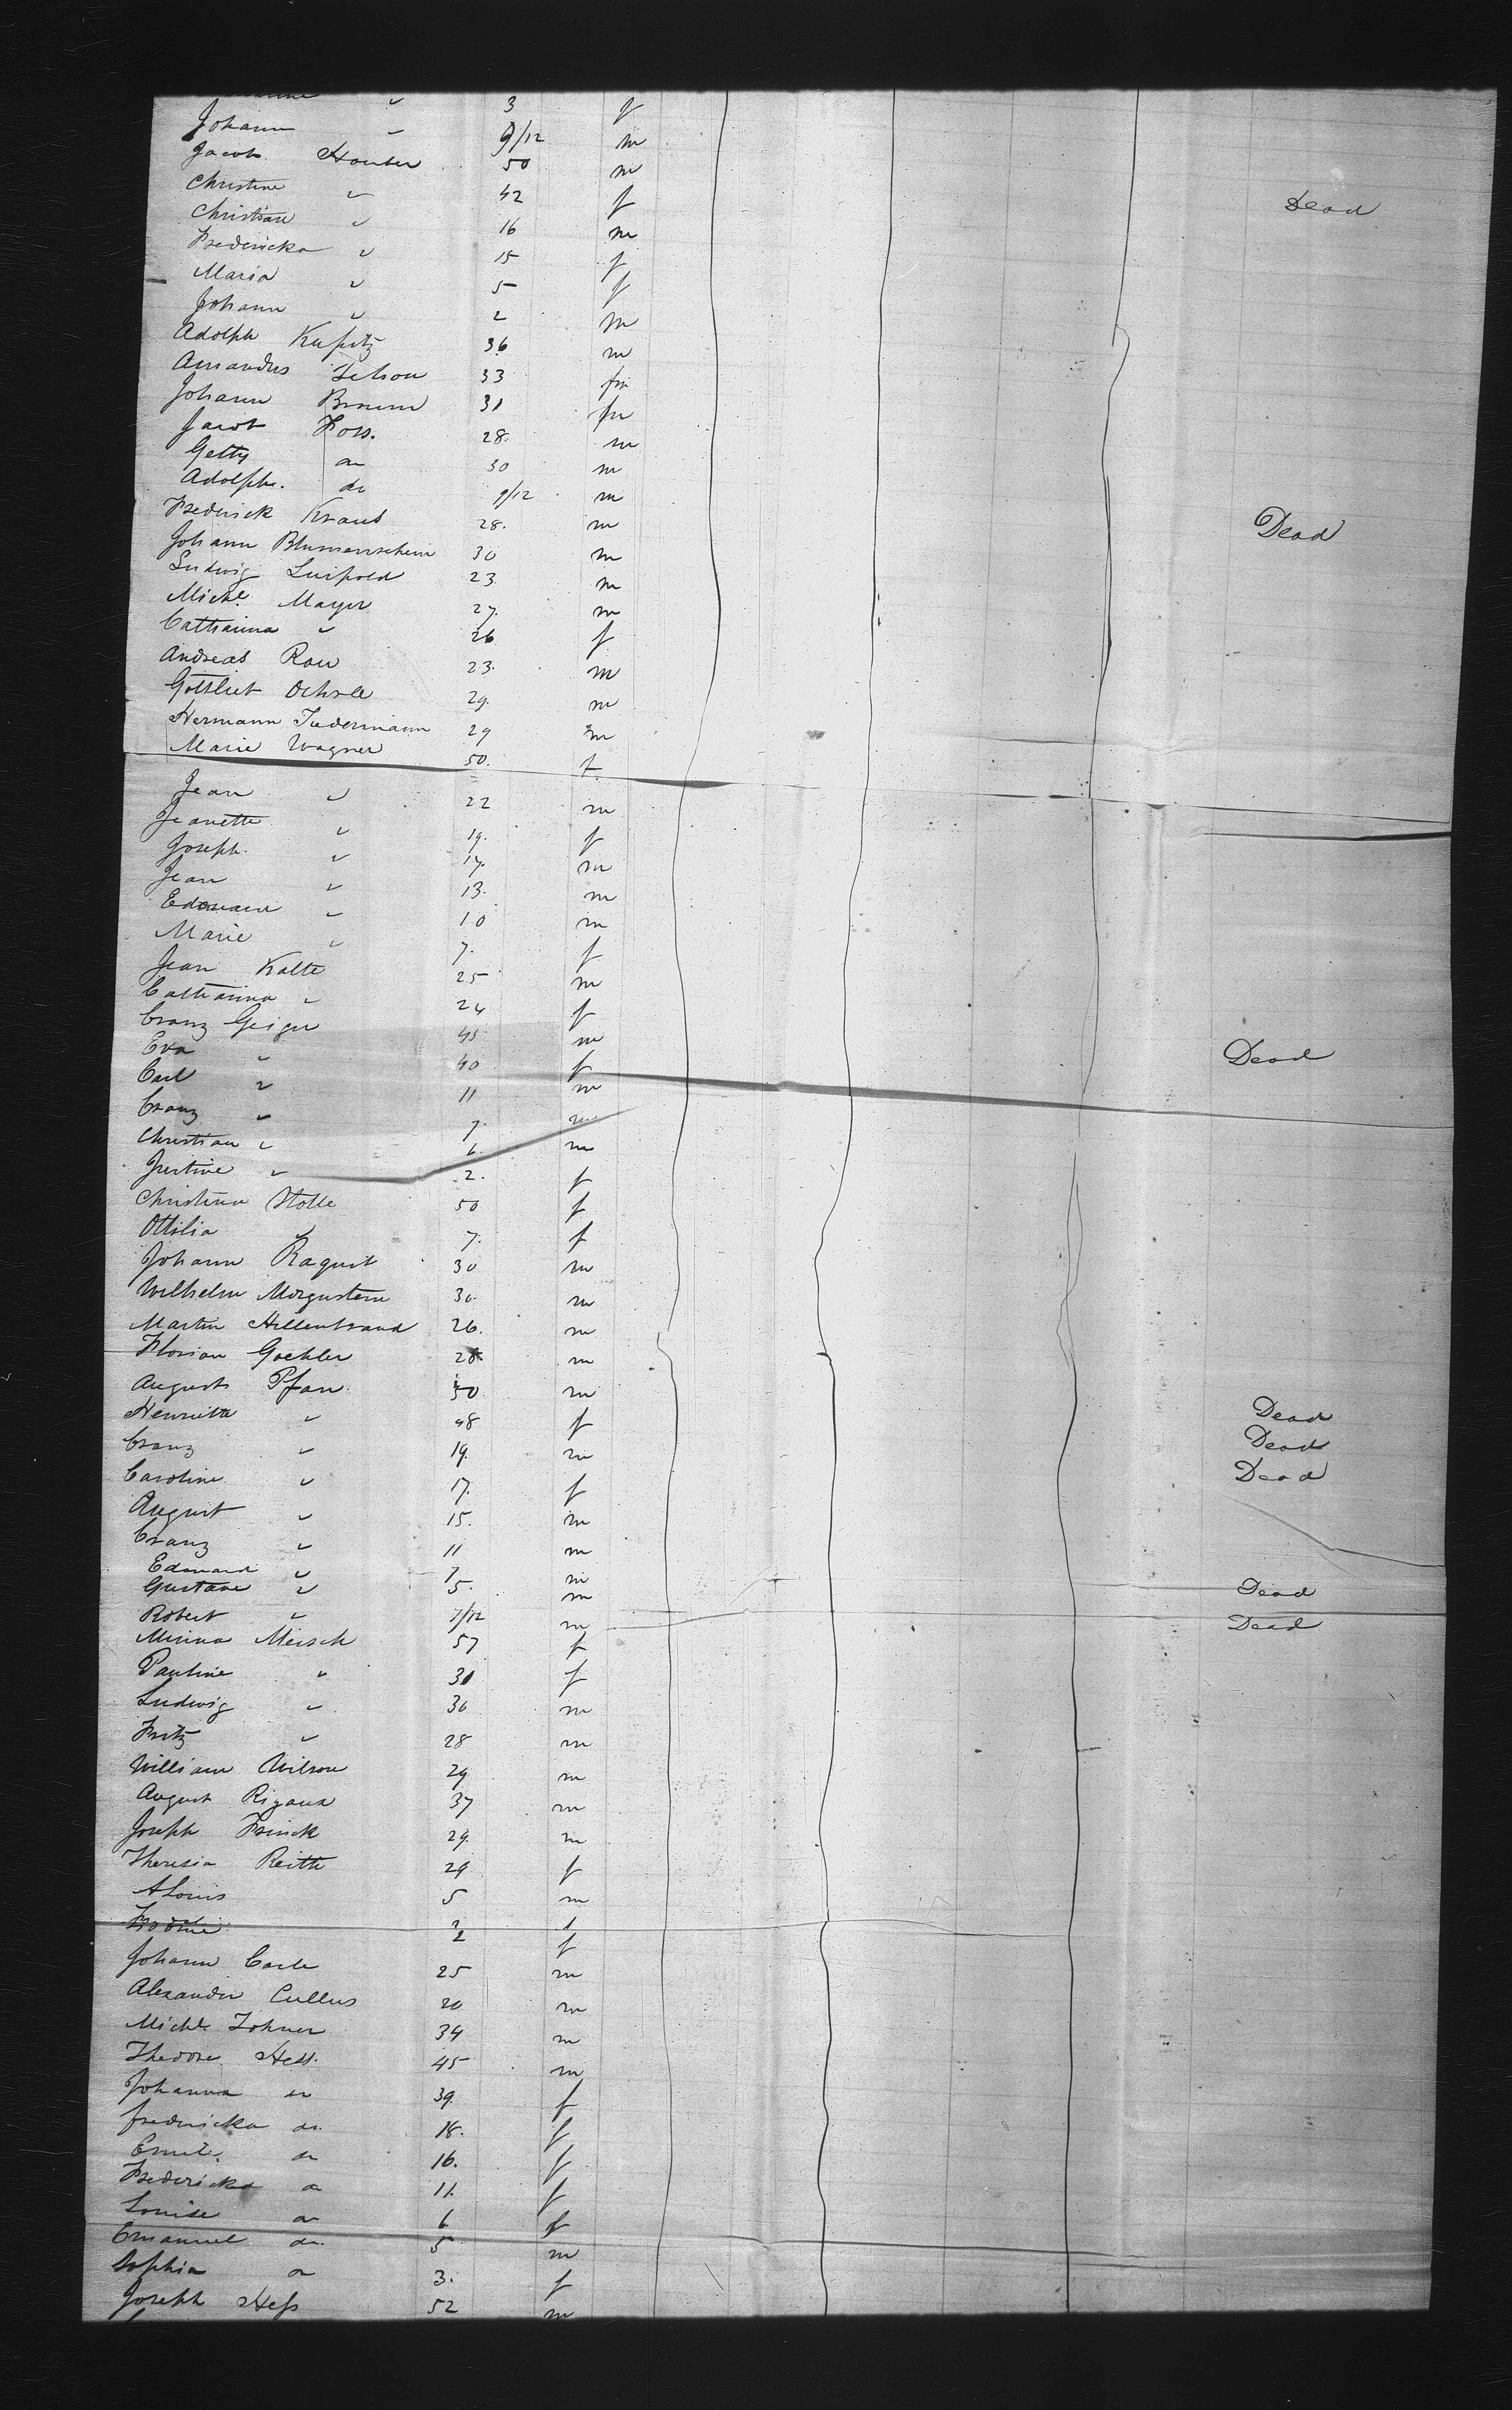 " 3 f
Johann " 9/12 m
Jacob Houber 50 m
Christine " 42 f Dead
Christian " 16 m
Fredericka " 15 f
Maria " 5 f
Johann " 2 m
Adolph Kupitz 36 m
Amandus 33 m
Johann Braun 31 m
Jacob Hoss. 28. m
Getty do 30 m
Adolph. do 9/12 m
Frederick Kraus 28. m Dead
Johann Blumenschein 30 m
Ludwig Luipold 23 m
Michl. Mayer 27. m
Catharina " 26 f
Andreas Rau 23. m
Gottlieb Ochsle 29. m
Hermann Tudermann 29 m
Marie Wagner 50. f.
Jean " 22 m
Jeanette " 19. f
Joseph. " 17. m
Jean " 13. m
Edouard " 10 m
Marie " 7. f
Jean Kalte 25 m
Catharina " 24 f
Franz Geiger 45 m
Eva " 40 f Dead
Carl " 11 m
Franz " 7. m
Christian " 6. m
Justine " 2. f
Christina Stolle 50 f
Ottilia " 7. f
Johann Ragust 30 m
Wilhelm Morgustern 30. m
Martin Hillenbrand 26. m
Florian Gaehler 28 m
August Pfau 50 m
Henrietta " 48 f Dead
Franz " 19. m Dead
Caroline " 17. f Dead
August " 15. m
Franz " 11 m
Edouard " 7 m
Gustave " 5. m Dead
Robert " 7/12 m Dead
Minna Meisch 57 f
Pauline " 31 f
Ludwig " 30 m
Fritz " 28 m
William Wilson 29 m
August Rigaux 37 m
Joseph Frinck 29. m
Theresia Reith 29 f
Alouis 5 m
2 f
Johann Carle 25 m
Alexander Cullus 20 m
Michl. Zohner 34 m
Thedore Hess. 45 m
Johanna do 39. f
Fredericka do. 18. f
Emil. do 16. f
Fredericka do 11. f
Louise do 6 f
Emanuel do. 5 m
Sophia do 3. f
Joseph Hess 52 m